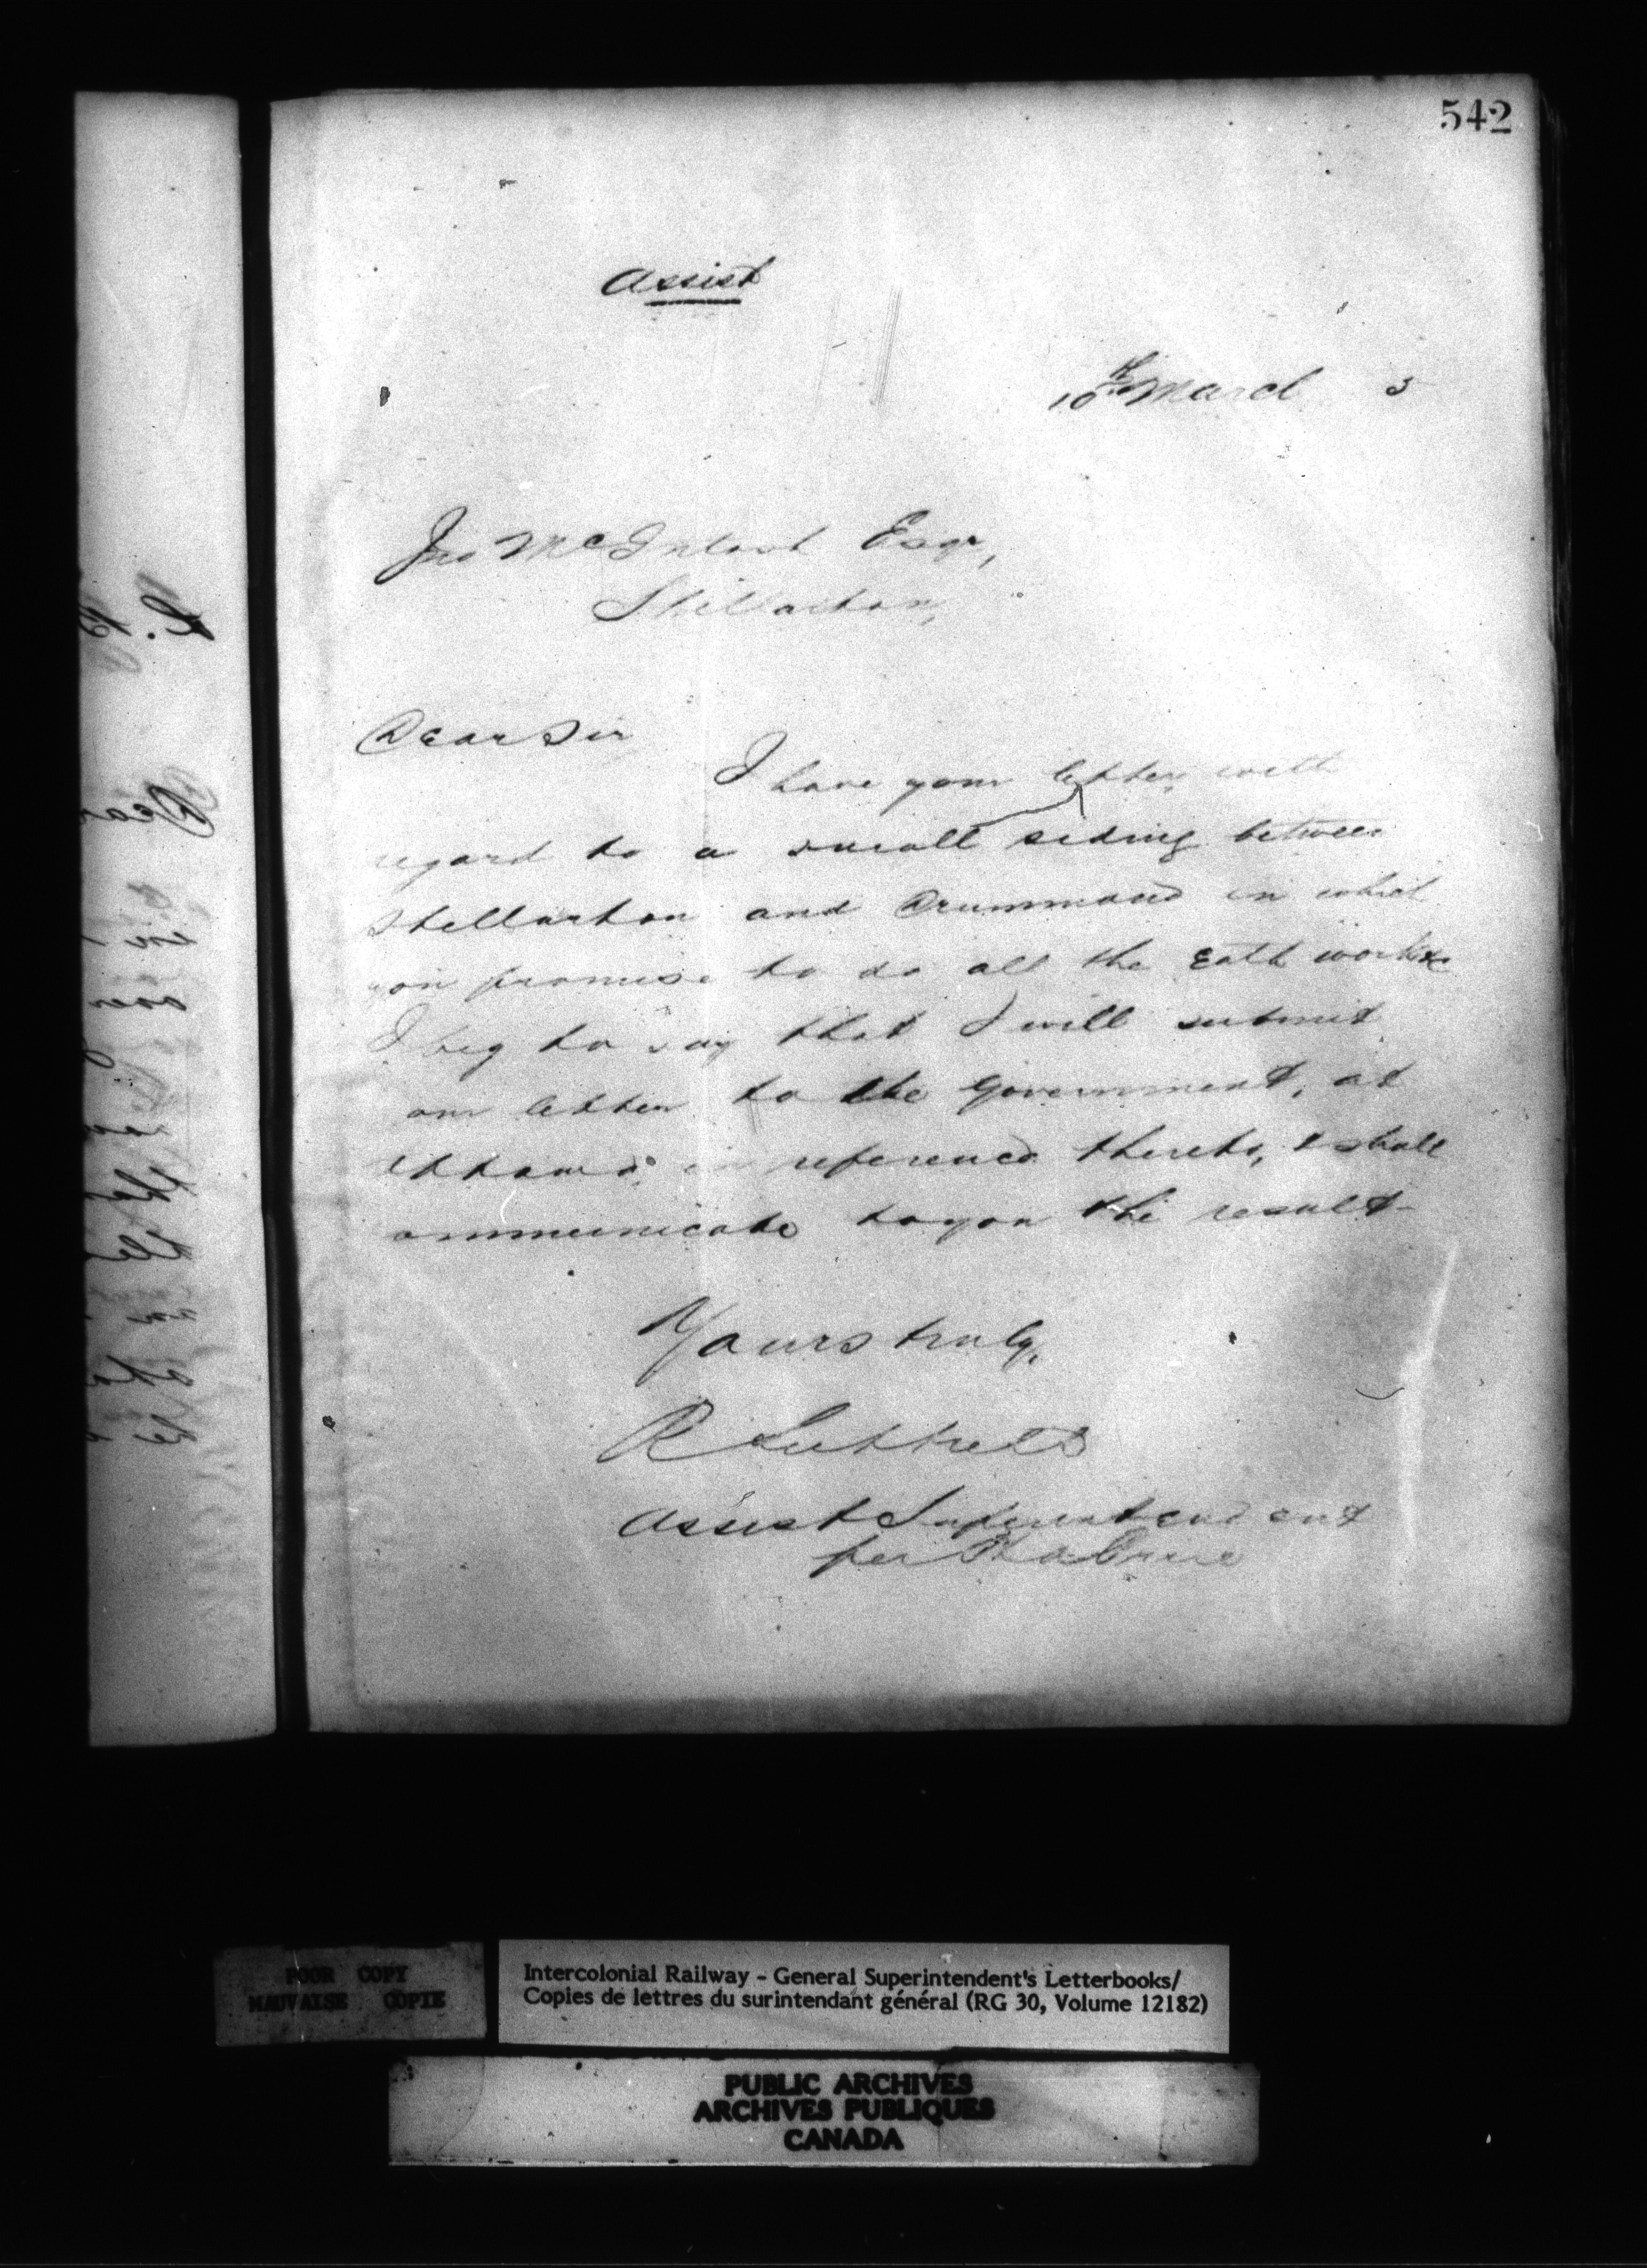 542
Assist
10th March 5
Jno McIntosh Esqr,
Stellarton,
Dear Sir
I have your letter with
regard to a small siding between
Stellarton and Drummond in which
you promise to do all the Eath work &c
I beg to say that I will submit
our letter to the Government, at
ttawa in reference thereto, & shall
ommunicate to you the result-
Yours truly,
R Luttrell
Assist Superintendent
per
POOR COPY
MAUVAISE COPIE
Intercolonial Railway - General Superintendent's Letterbooks/
Copies de lettres du surintendant général (RG 30, Volume 12182)
PUBLIC ARCHIVES
ARCHIVES PUBLIQUES
CANADA